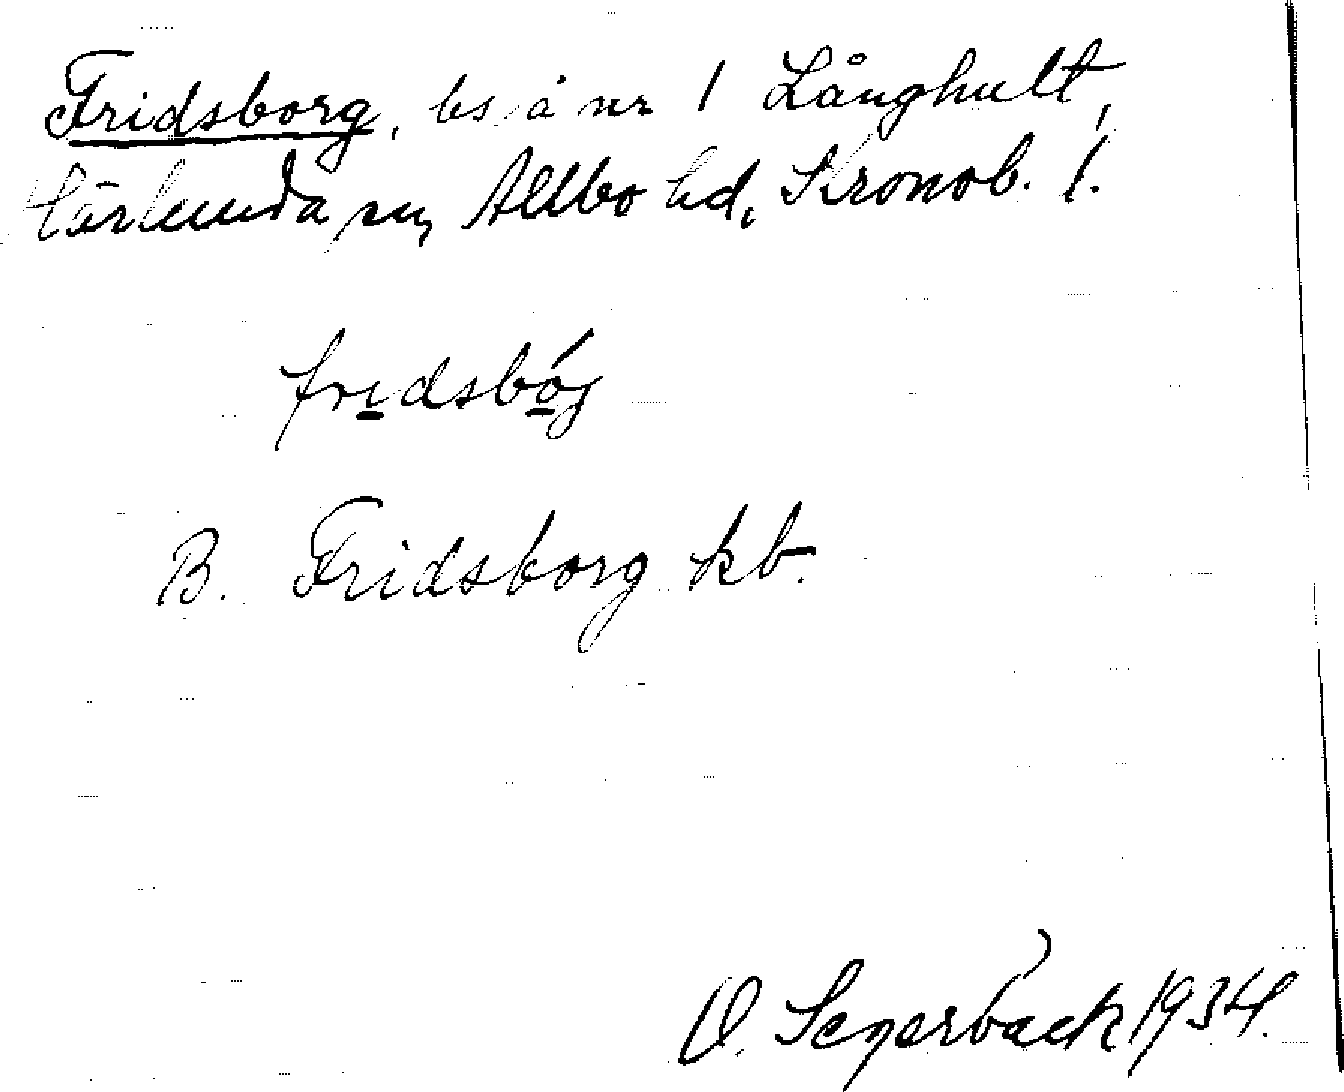 Fridsborg, bs å nr 1 Långhult,
Härlunda sn, Allbo hd, Kronob. l.
fridsbórj
B. Fridsborg kb.
O. Segerbäck 1934.